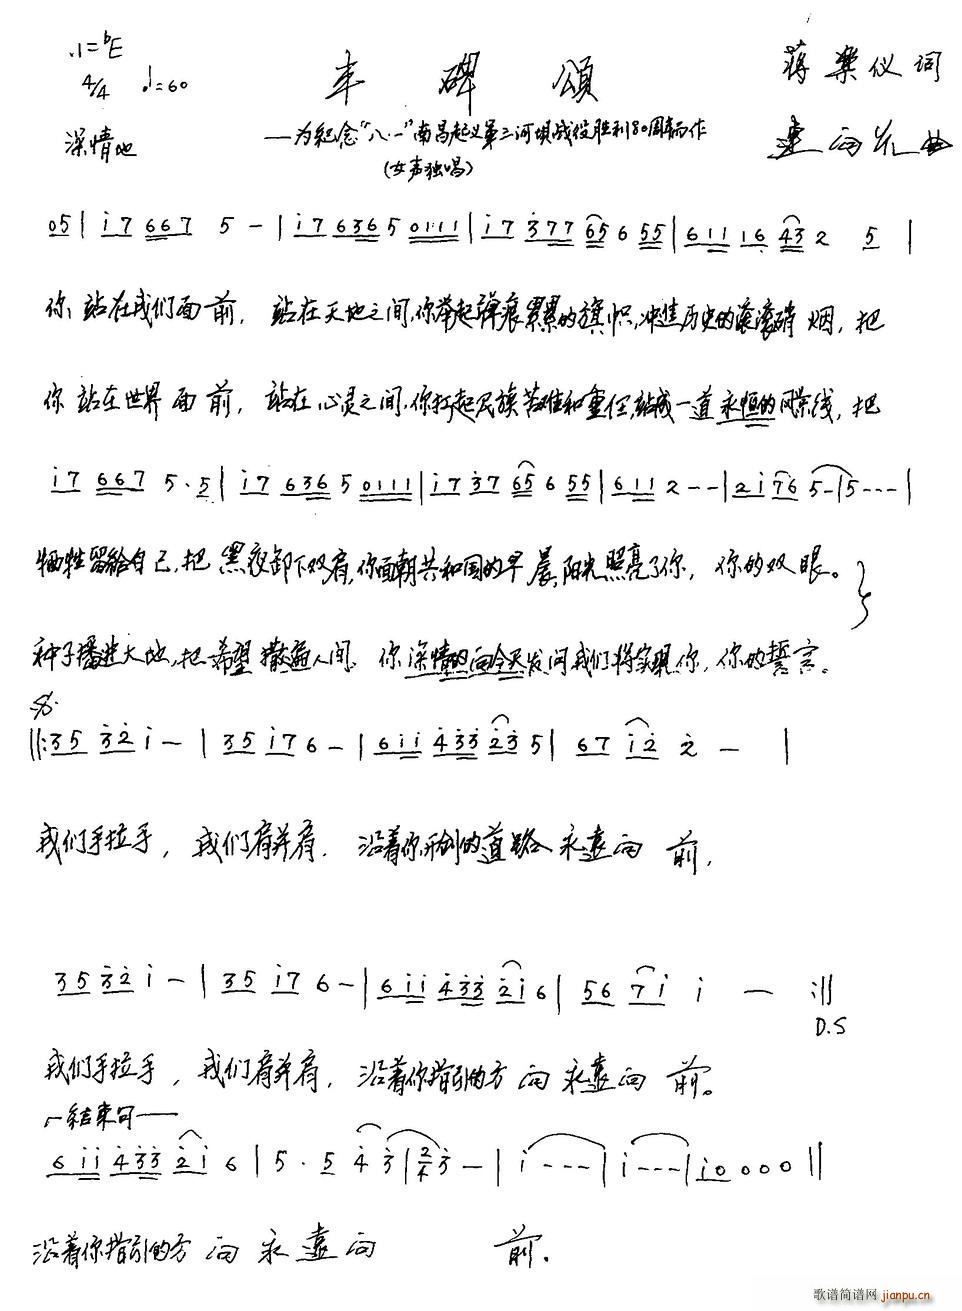 1=ᵇE
4/4 ♩=60
丰 碑 颂
蒋 乐 仪 词
——为纪念“八·一”南昌起义第三河坝战役胜利80周年而作
深情地
(女声独唱)
曲
05| i7 667 5 - | i7 6365 0111 | i7 377 65 6 55 | 611 16 43 2 5 |
你 站在我们面前, 站在天地之间,你举起弹痕累累的旗帜,冲进历史的滚滚硝烟,把
你 站在世界面前, 站在心灵之间,你扛起民族苦难和重任,站成一道永恒的风景线,把
i7 667 5·5 | i7 6365 0111 | i7 37 65 6 55 | 611 2 - - | 2i76 5 - | 5 - - - |
牺牲留给自己,把黑夜卸下双肩,你面朝共和国的早晨,阳光照亮了你, 你的双眼。
种子播进大地,把希望撒遍人间, 你深情的向今天发问我们将实现你, 你的誓言。
𝄋
‖: 35 32 i - | 35 i7 6 - | 6ii 433 23 5 | 67 i2 2 - |
我们手拉手, 我们肩并肩, 沿着你开创的道路永远向前,
35 32 i - | 35 i7 6 - | 6ii 433 2i 6 | 56 7i i - :‖
D.S
我们手拉手, 我们肩并肩, 沿着你指引的方向永远向前。
┌结束句——
6ii 433 2i 6 | 5·5 4 3 | 2/4 3 - | i - - - | i - - - | i0 0 0 0 ‖
沿着你指引的方向永远向 前.
歌谱简谱网 jianpu.cn